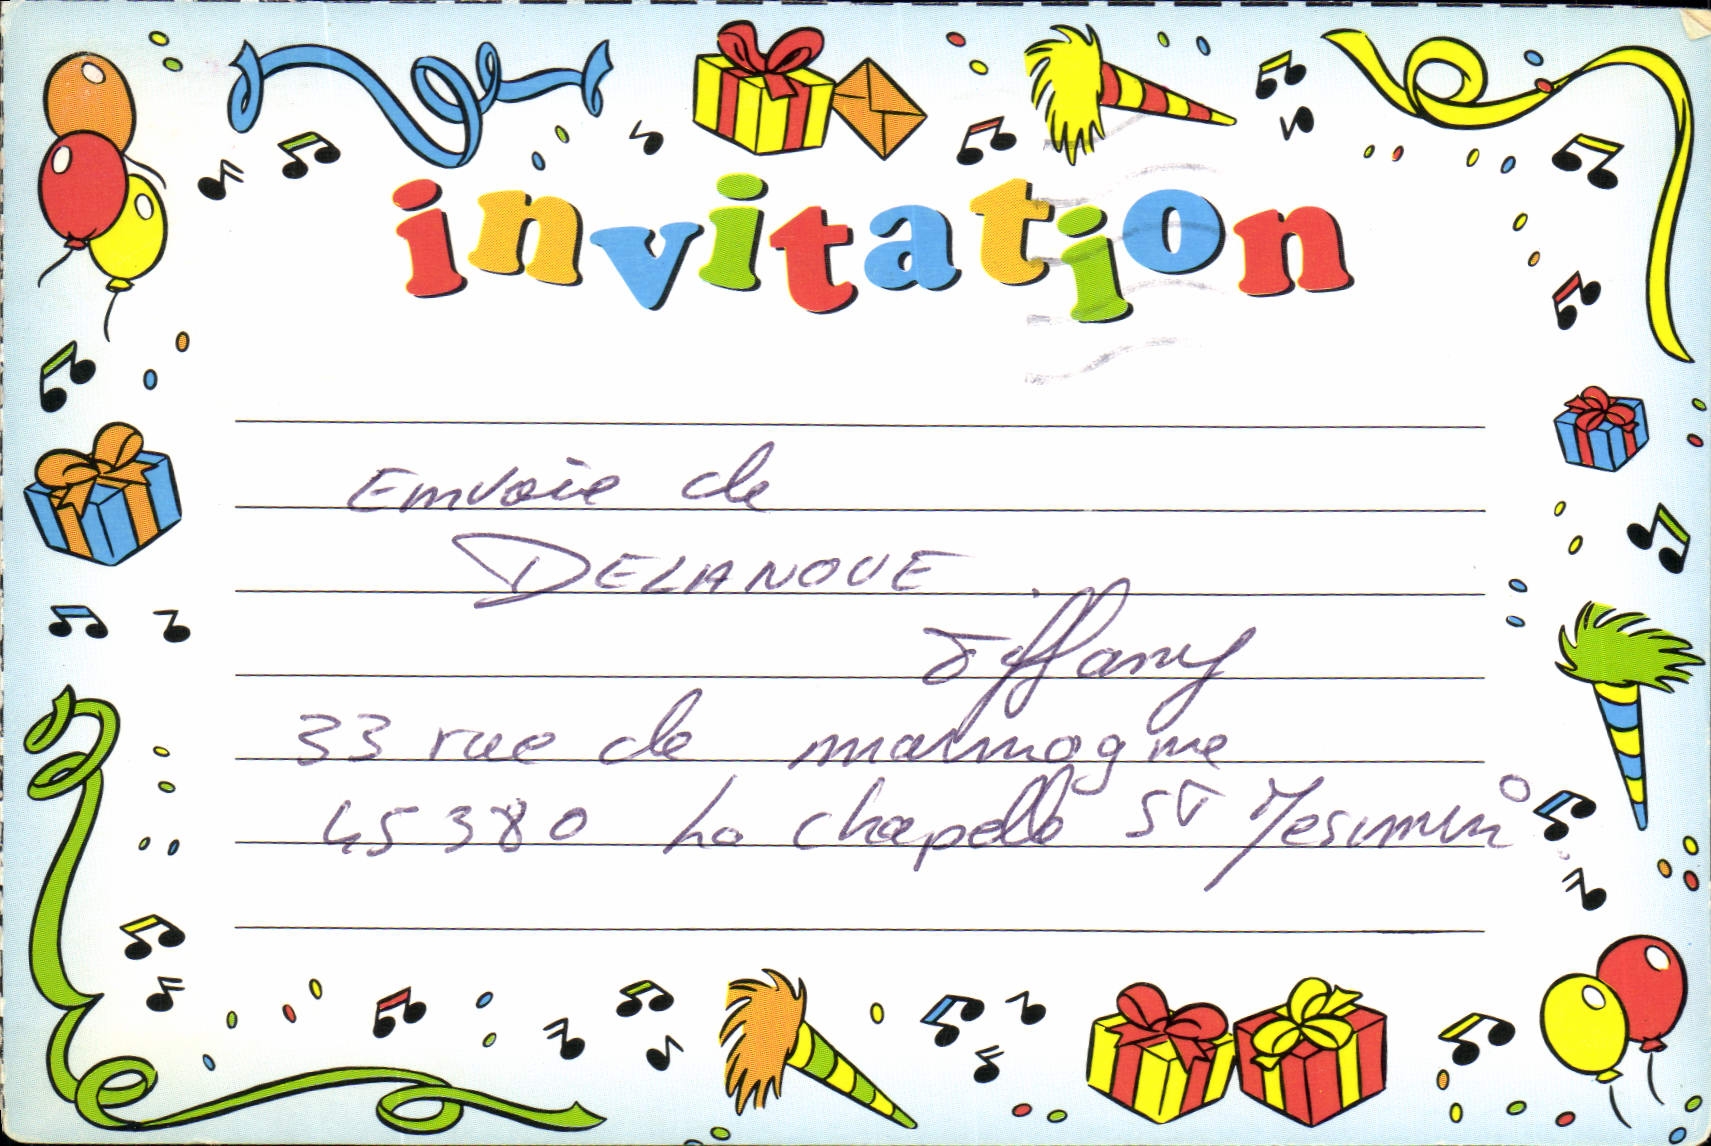 invitation
Envoie de
DELANOUE
Tiffany
33 rue de marmogne
45380 La chapelle ST Mesmin